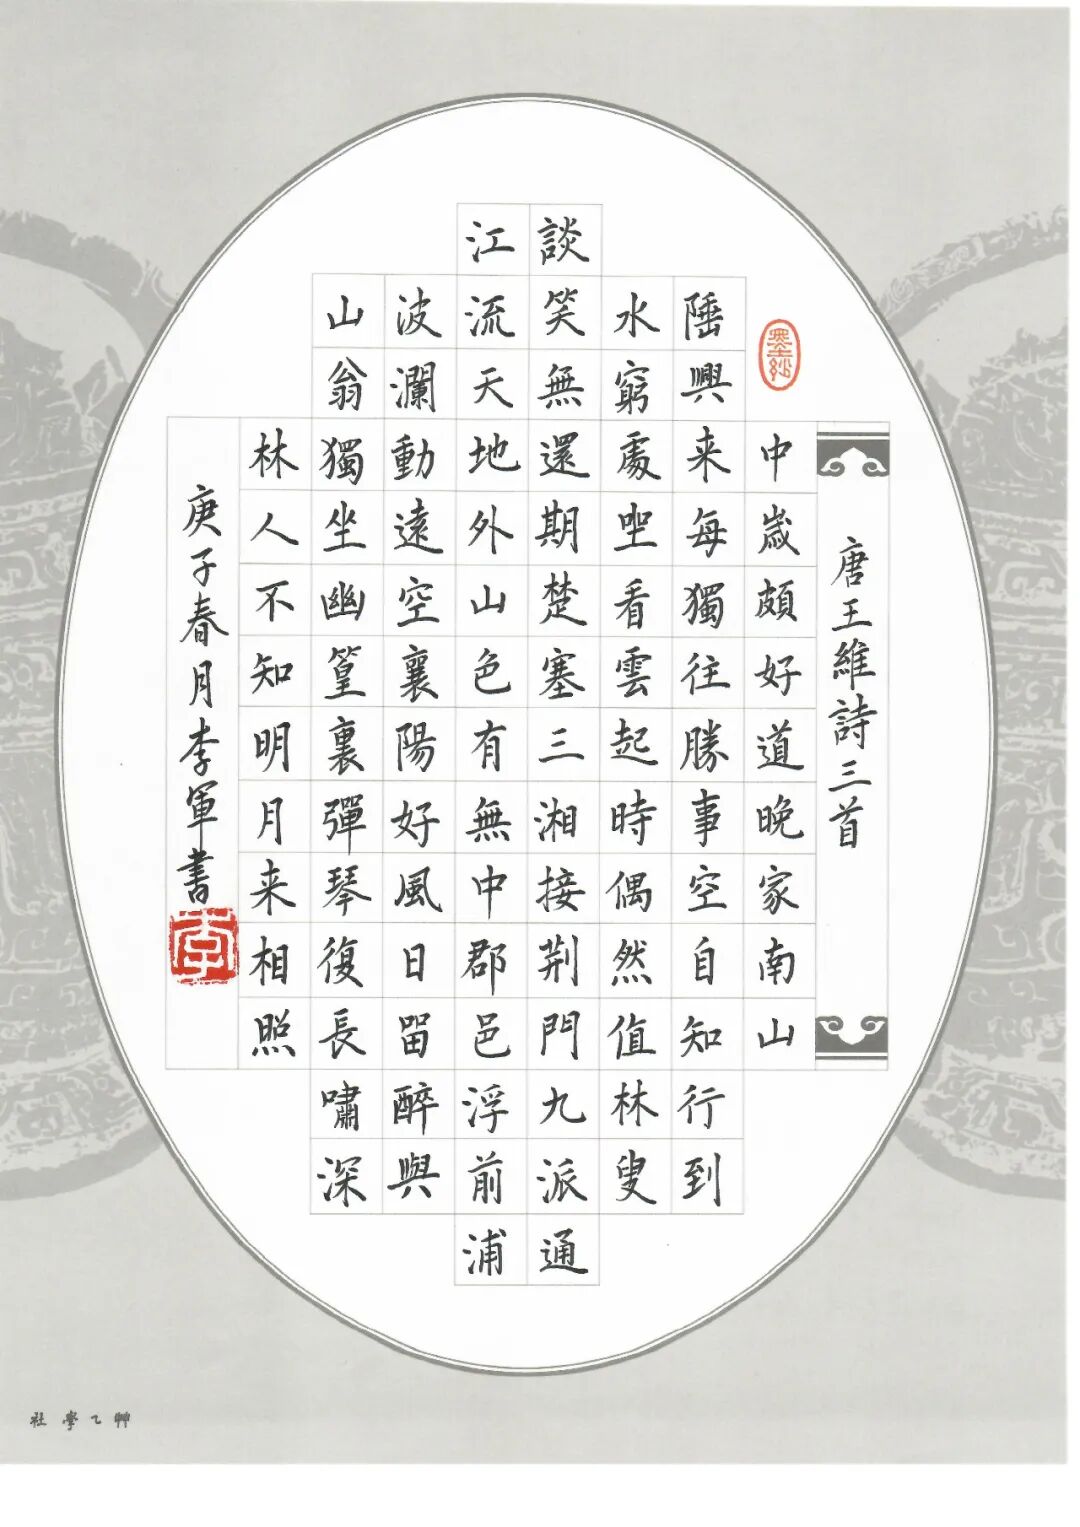 唐王維詩三首
中歲頗好道晚家南山
陲興来每獨往勝事空自知行到
水窮處坐看雲起時偶然值林叟
談笑無還期楚塞三湘接荆門九派通
江流天地外山色有無中郡邑浮前浦
波瀾動遠空襄陽好風日留醉與
山翁獨坐幽篁裏彈琴復長嘯深
林人不知明月来相照
庚子春月李軍書
李
艸乙學社